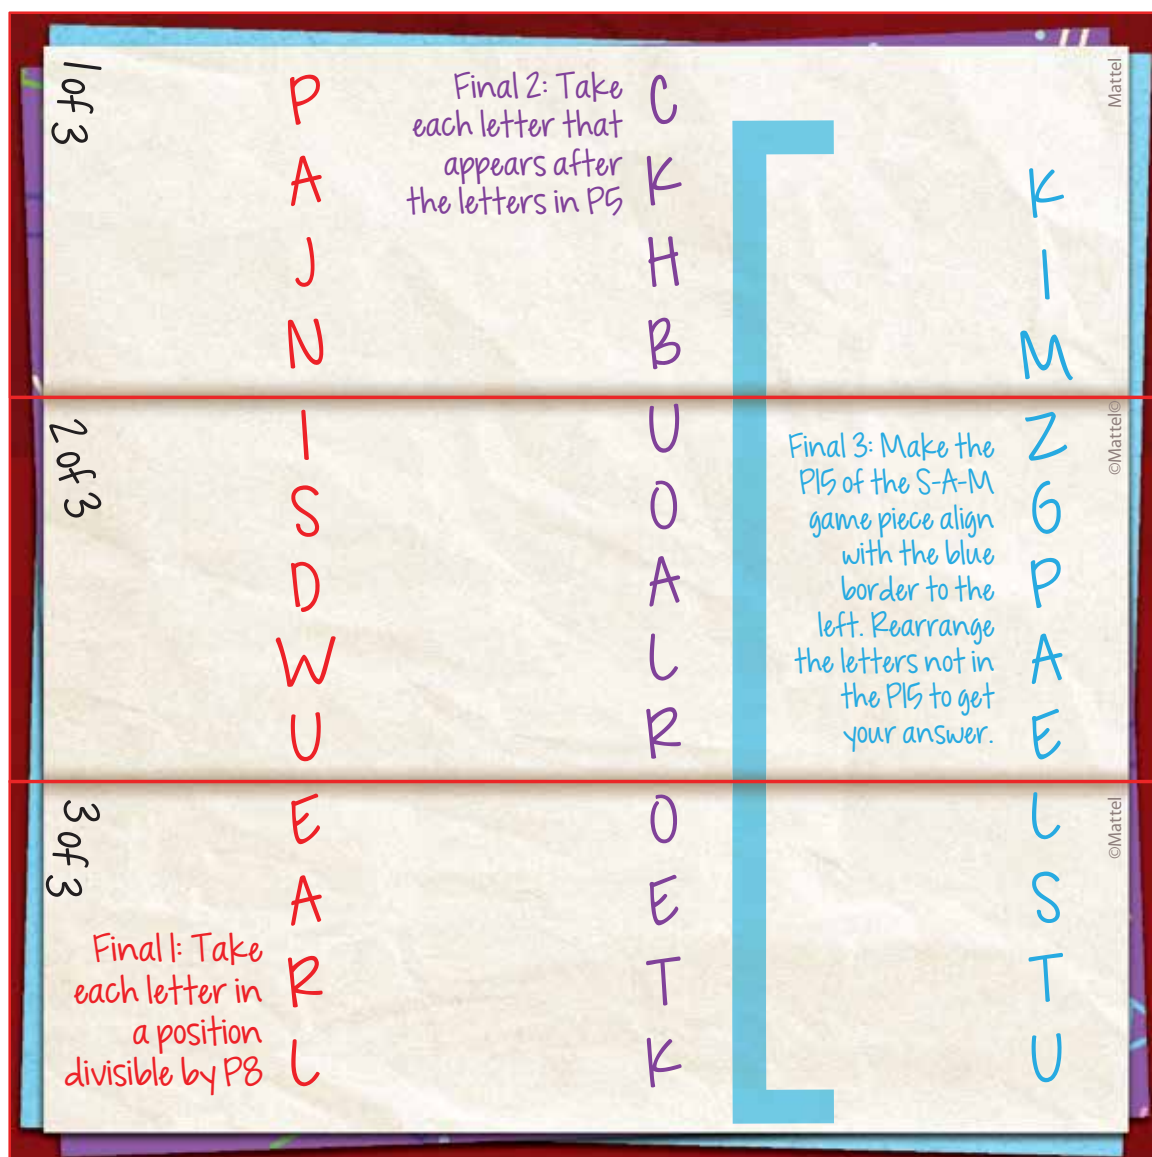 1 of 3
2 of 3
3 of 3
P
A
J
N
I
S
D
W
U
E
A
R
L
Final 1: Take
each letter in
a position
divisible by P8
Final 2: Take
each letter that
appears after
the letters in P5
C
K
H
B
U
O
A
L
R
O
E
T
K
Final 3: Make the
P15 of the S-A-M
game piece align
with the blue
border to the
left. Rearrange
the letters not in
the P15 to get
your answer.
K
I
M
Z
G
P
A
E
L
S
T
U
Mattel
©Mattel©
©Mattel